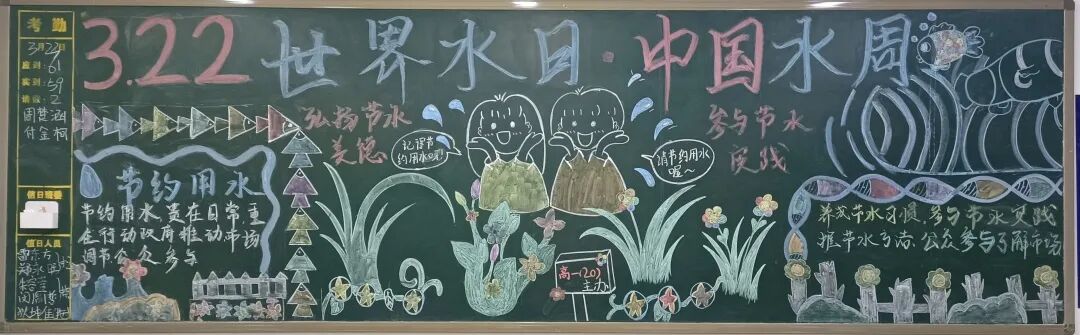 考勤
3月22日
应到：61
实到：59
请假：2
值日班委
值日人员
3.22世界水日·中国水周
弘扬节水
美德
节约用水
节约用水，贵在日常重
在行动政府推动市场
调节公众参与
记得节
约用水呀！
请节约用水
喔～
参与节水
实践
高一(20)
主办
养成节水习惯，参与节水实践
推节水方法，公众参与了解市场